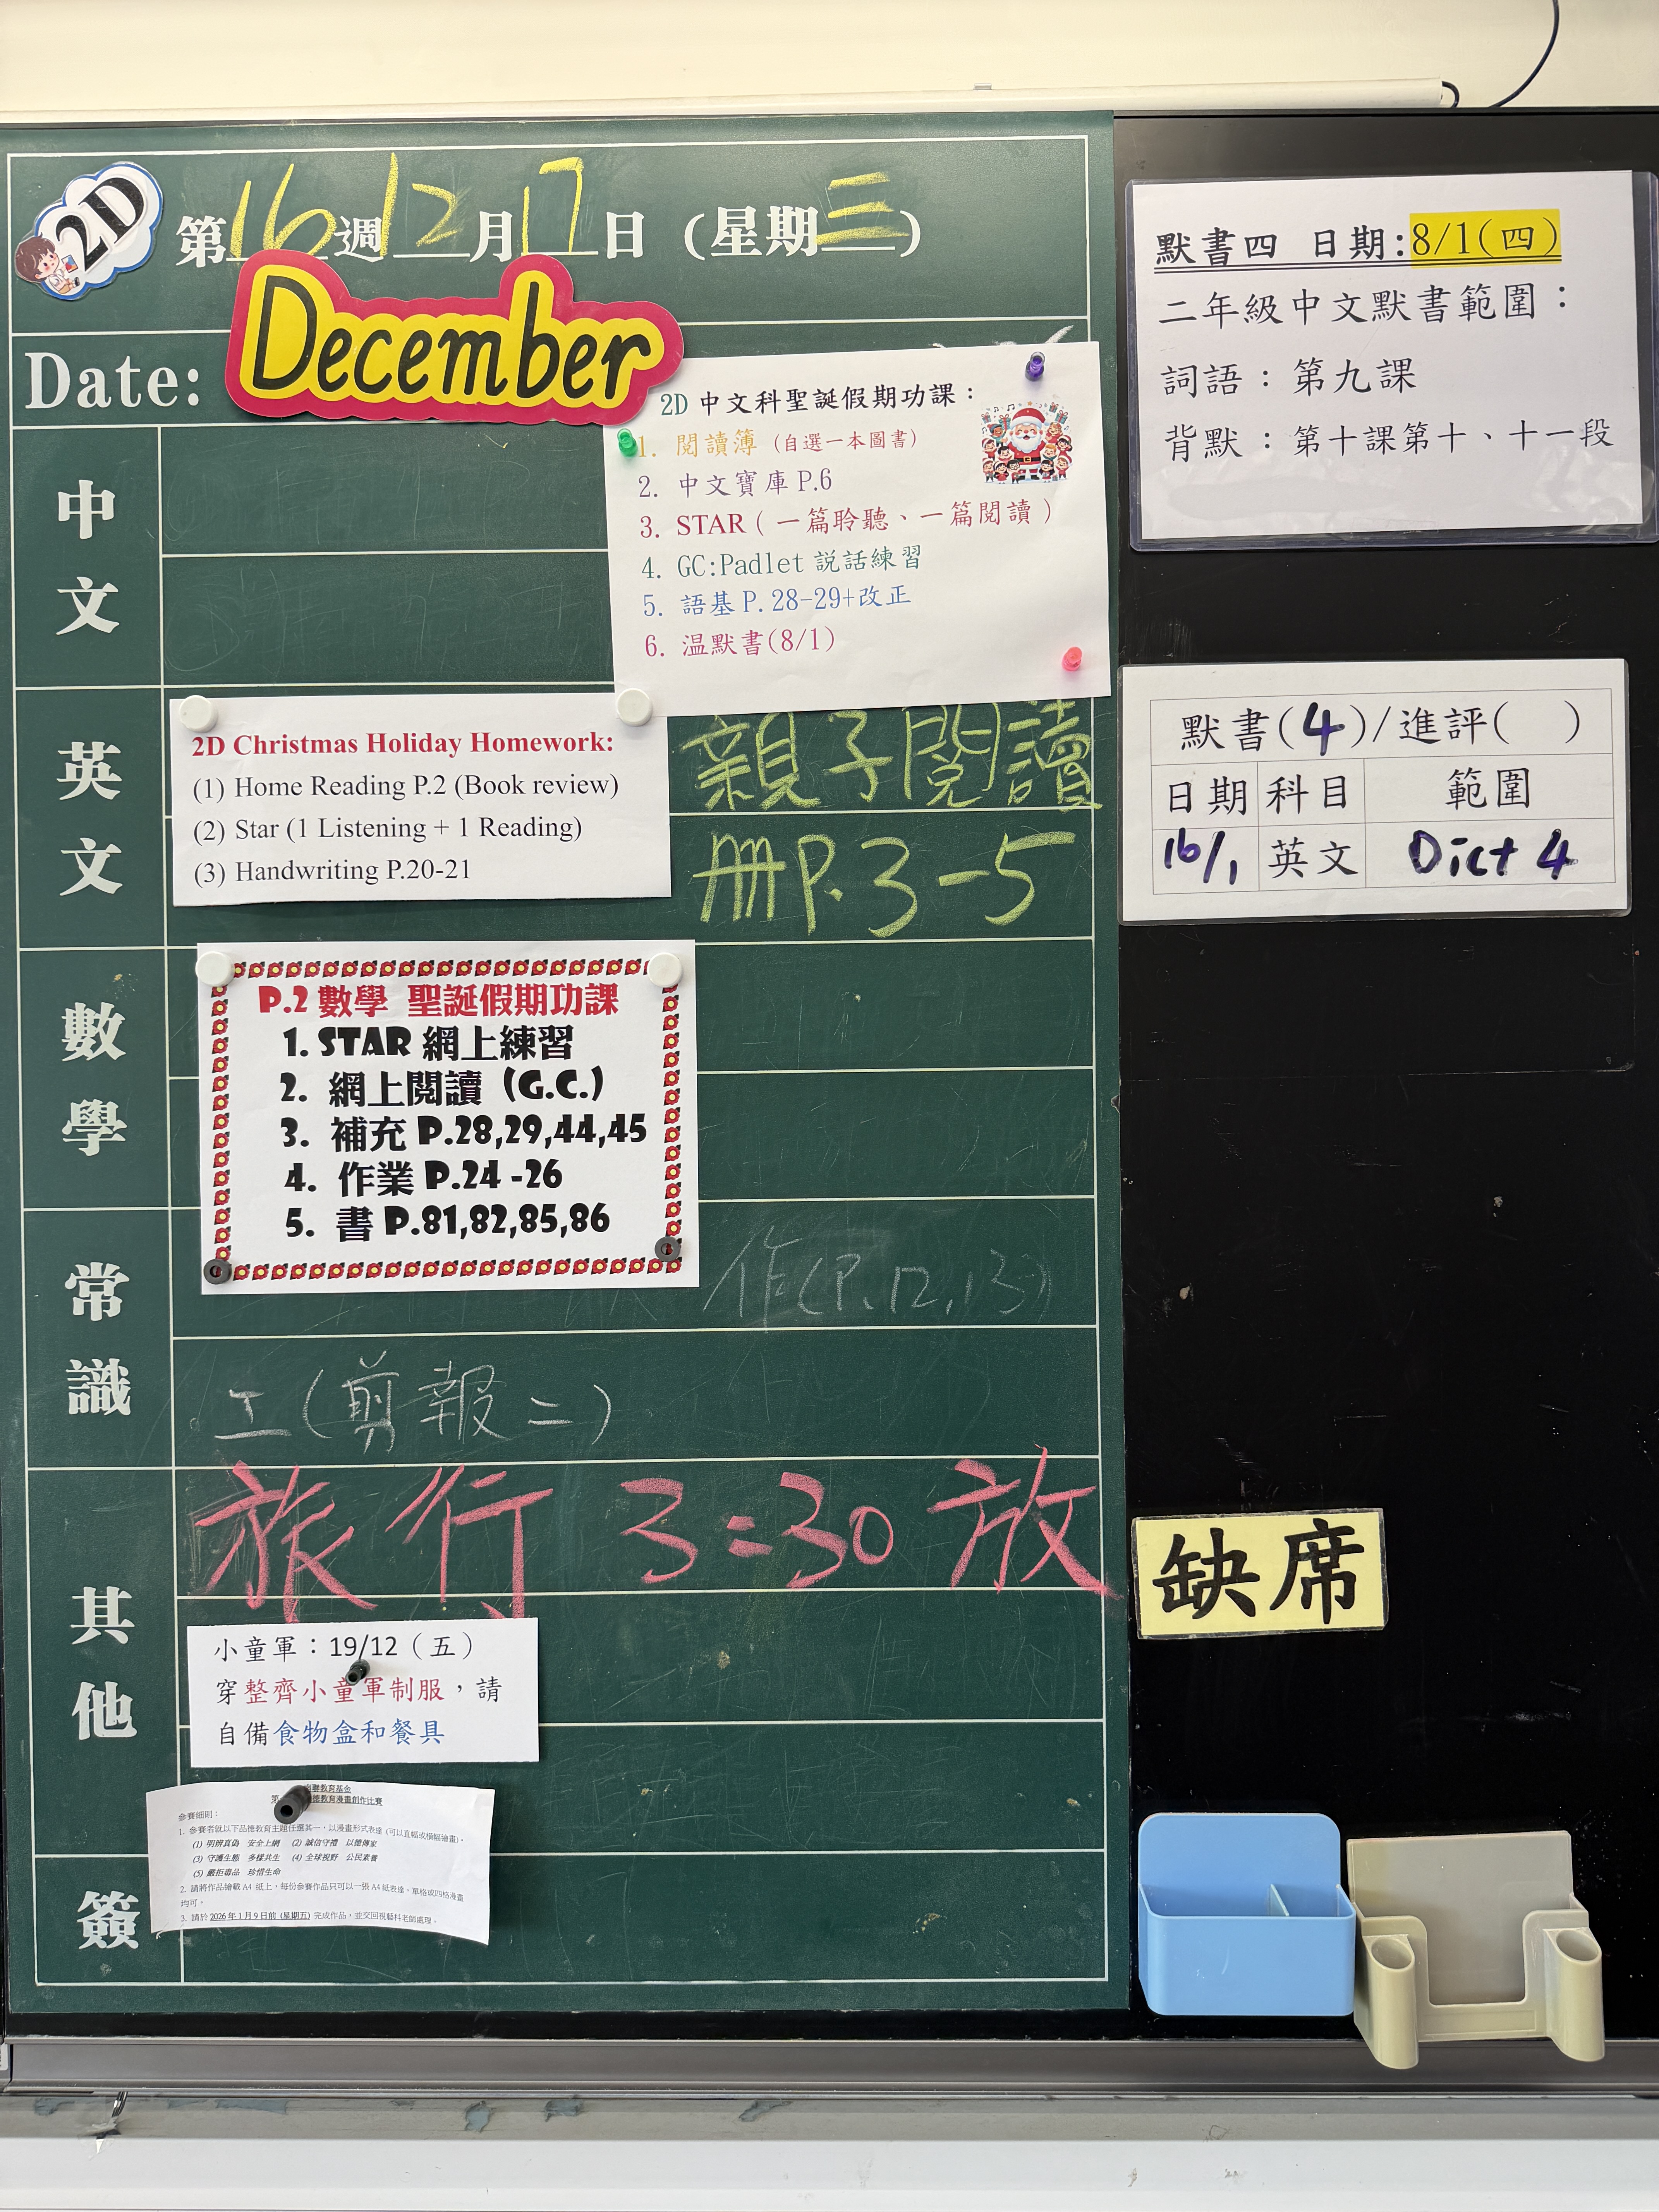 2D
第16週12月17日(星期三)
Date:
December
2D 中文科聖誕假期功課：
1. 閱讀簿（自選一本圖書）
2. 中文寶庫 P.6
3. STAR（一篇聆聽、一篇閱讀）
4. GC:Padlet 説話練習
5. 語基 P.28-29+改正
6. 温默書(8/1)
中文
英文
2D Christmas Holiday Homework:
(1) Home Reading P.2 (Book review)
(2) Star (1 Listening + 1 Reading)
(3) Handwriting P.20-21
親子閱讀
冊P.3-5
數學
P.2 數學 聖誕假期功課
1. STAR 網上練習
2. 網上閱讀 (G.C.)
3. 補充 P.28,29,44,45
4. 作業 P.24 -26
5. 書 P.81,82,85,86
常識
作(P.12,13)
工(剪報二)
其他
旅行 3:30放
小童軍：19/12（五）
穿整齊小童軍制服，請
自備食物盒和餐具
簽
教育基金
教育漫畫創作比賽
參賽細則：
1. 參賽者就以下品德教育主題任選其一，以漫畫形式表達 (可以直幅或橫幅繪畫)。
(1) 明辨真偽 安全上網 (2) 誠信守禮 以德傳家
(3) 守護生態 多樣共生 (4) 全球視野 公民素養
(5) 嚴拒毒品 珍惜生命
2. 請將作品繪載 A4 紙上，每份參賽作品只可以一張 A4 紙表達，單格或四格漫畫
均可。
3. 請於 2026 年 1 月 9 日前 (星期五) 完成作品，並交回視藝科老師處理。
默書四 日期:8/1(四)
二年級中文默書範圍：
詞語：第九課
背默：第十課第十、十一段
默書(4)/進評( )
日期 科目 範圍
16/1 英文 Dict 4
缺席